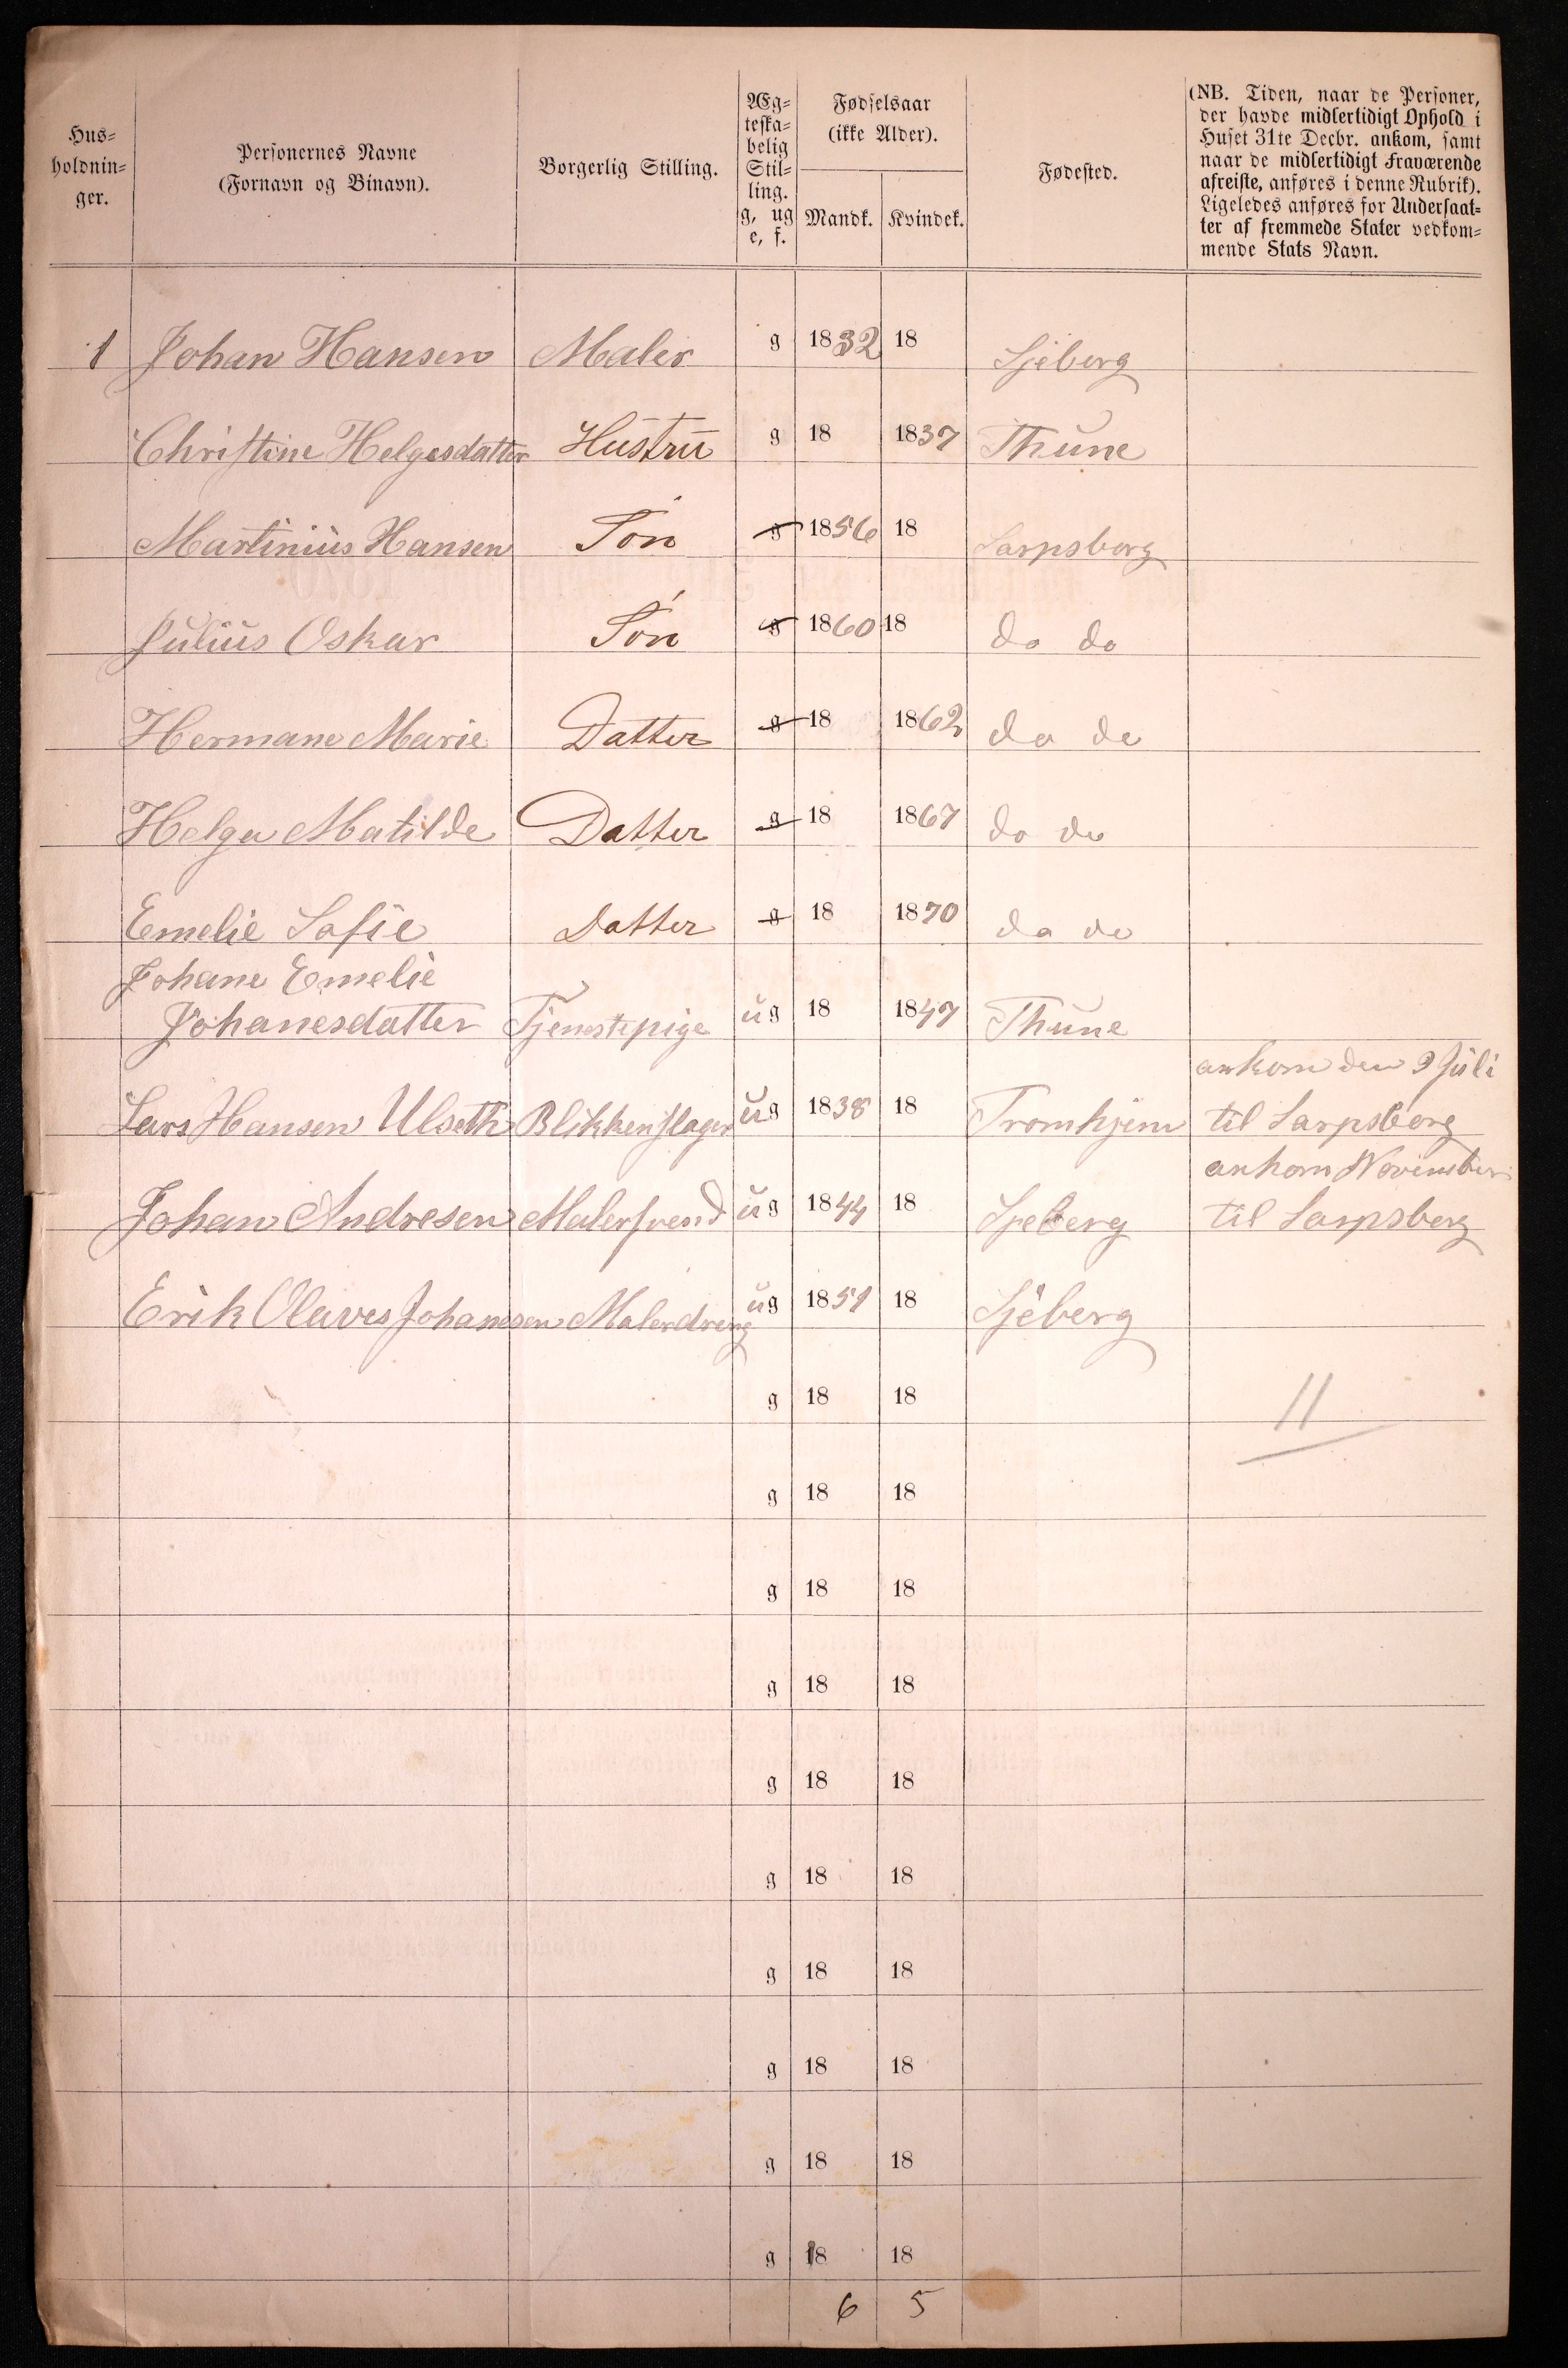 Hus=
holdnin=
ger.
Personernes Navne
(Fornavn og Binavn).
Borgerlig Stilling.
Æg=
teska=
belig
Stil=
ling.
g, ug
e, f.
Fødselsaar
(ikke Alder).
Mandk. Kvindek.
Fødested.
(NB. Tiden, naar de Personer,
der havde midlertidigt Ophold i
Huset 31te Decbr. ankom, samt
naar de midlertidigt Fraværende
afreiste, anføres i denne Rubrik).
Ligeledes anføres for Undersaat=
ter af fremmede Stater vedkom=
mende Stats Navn.
1 Johan Hansen Maler g 1832 18 Sjeberg
Christine Helgesdatter Hustru g 18 1837 Thune
Martinius Hansen Søn g 1856 18 Sarpsborg
Julius Oskar Søn g 1860 18 do do
Hermane Marie Datter g 18 1862 do do
Helga Matilde Datter g 18 1867 do do
Emelie Sofie Datter g 18 1870 do do
Johane Emelie
Johanesdatter Tjenestepige ug 18 1847 Thune
ankom den 9 Juli
Lars Hansen Ulseth Blikkenslager ug 1838 18 Tromhjem til Sarpsborg
ankom November
Johan Andresen Malersvend ug 1844 18 Sjeberg til Sarpsberg
Erik Olaves Johanesen Malerdreng ug 1851 18 Sjeberg
g 18 18
11
g 18 18
g 18 18
g 18 18
g 18 18
g 18 18
g 18 18
g 18 18
g 18 18
g 18 18
6 5